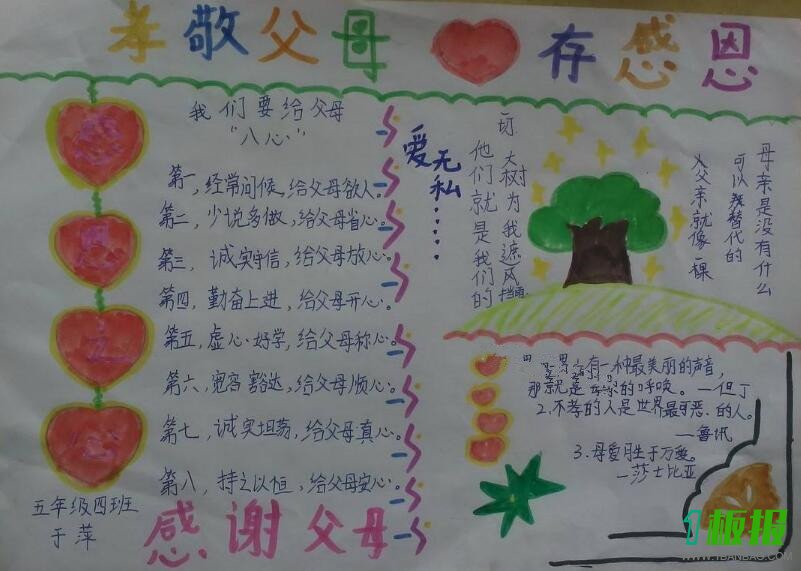 孝敬父母 存感恩
我们要给父母
"八心"
第一,经常问候,给父母
第二,少说多做,给父母省心。
第三,诚实守信,给父母放心。
第四,勤奋上进,给父母开心。
第五,虚心好学,给父母称心。
第六,宽容豁达,给父母顺心。
第七,诚实坦荡,给父母真心。
第八,持之以恒,给父母安心。
五年级四班
于萍
感谢父母
爱无私……
母亲是没有什么
可以替代的
父亲就像一棵
大树为我遮风挡雨
他们就是我们的
切
界上有一种最美丽的声音,
那就是的呼唤。—但丁
2.不孝的人是世界最可恶.的人。
—鲁讯
3.母爱胜于万爱。
—莎士比亚
1板报